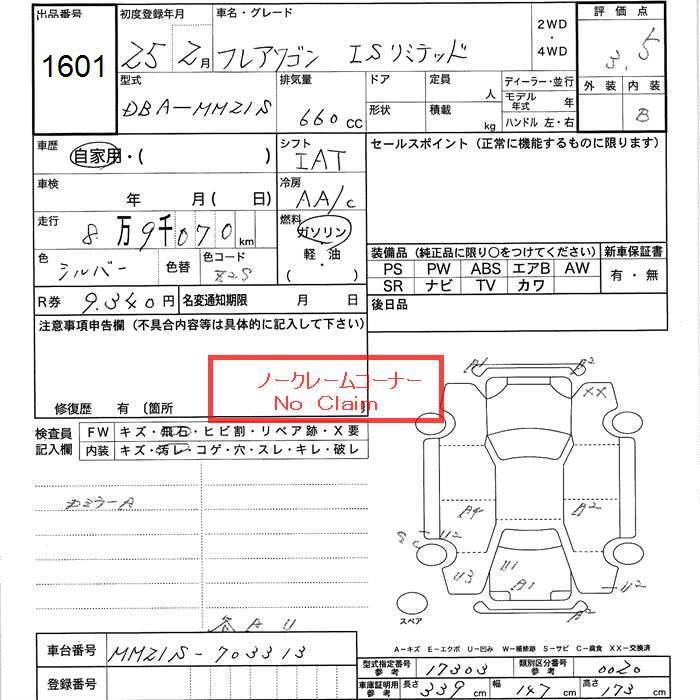 出品番号 初度登録年月 車名・グレード 2WD ・ 4WD 評価点
1601 25 2月 フレアワゴン ISリミテッド 3.5
型式 排気量 ドア 定員 人 ディーラー・並行 外装 内装
DBA-MM21S 660cc 形状 積載 kg モデル年式 年 B
ハンドル 左・右
車歴 自家用・( ) シフト IAT セールスポイント (正常に機能するものに限ります)
車検 年 月(日) 冷房 AA/c
走行 8万9千070km 燃料 ガソリン 軽油 ( ・ )
色 シルバー 色替 色コード Z2S
装備品 (純正品に限り○をつけてください) 新車保証書
PS PW ABS エアB AW 有・無
SR ナビ TV カワ
R券 9.340円 名変通知期限 月 日 後日品
注意事項申告欄 (不具合内容等は具体的に記入して下さい)
ノークレームコーナー
No Claim
修復歴 有 〔箇所 〕
検査員記入欄 FW キズ・飛石・ヒビ割・リペア跡・X要
内装 キズ・汚レ・コゲ・穴・スレ・キレ・破レ
A1 B2
XX
A4 B2
U2
S C
U3 U1 B1 U2
B2
スペア
A-キズ E-エクボ U-凹み W-補修跡 S-サビ C-腐食 XX-交換済
車台番号 MM21S-703313 型式指定番号 参考 17303 類別区分番号 参考 0020
登録番号 車庫証明用 参考 長さ 339cm 幅 147cm 高さ 173cm